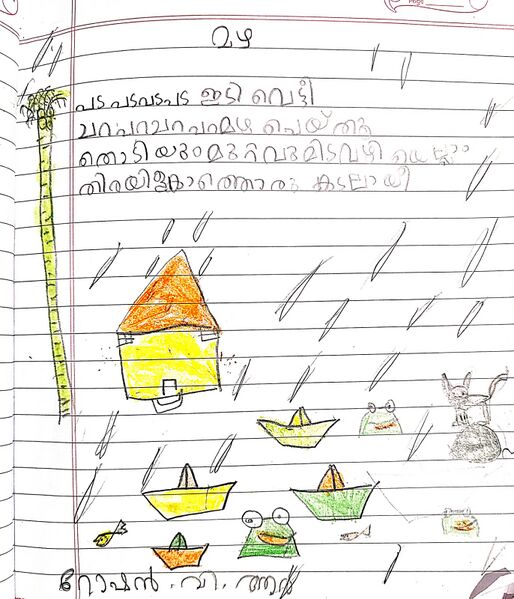 മഴ
പട പടപടപട ഇടി വെട്ടി
ചറപറചറപറമഴ പെയ്തു
തൊടിയുംമുറ്റവുമിടവഴി യെല്ലാം
തിരയിളകാത്തൊരു കടലായി
റോഷൻ . വി . ആർ